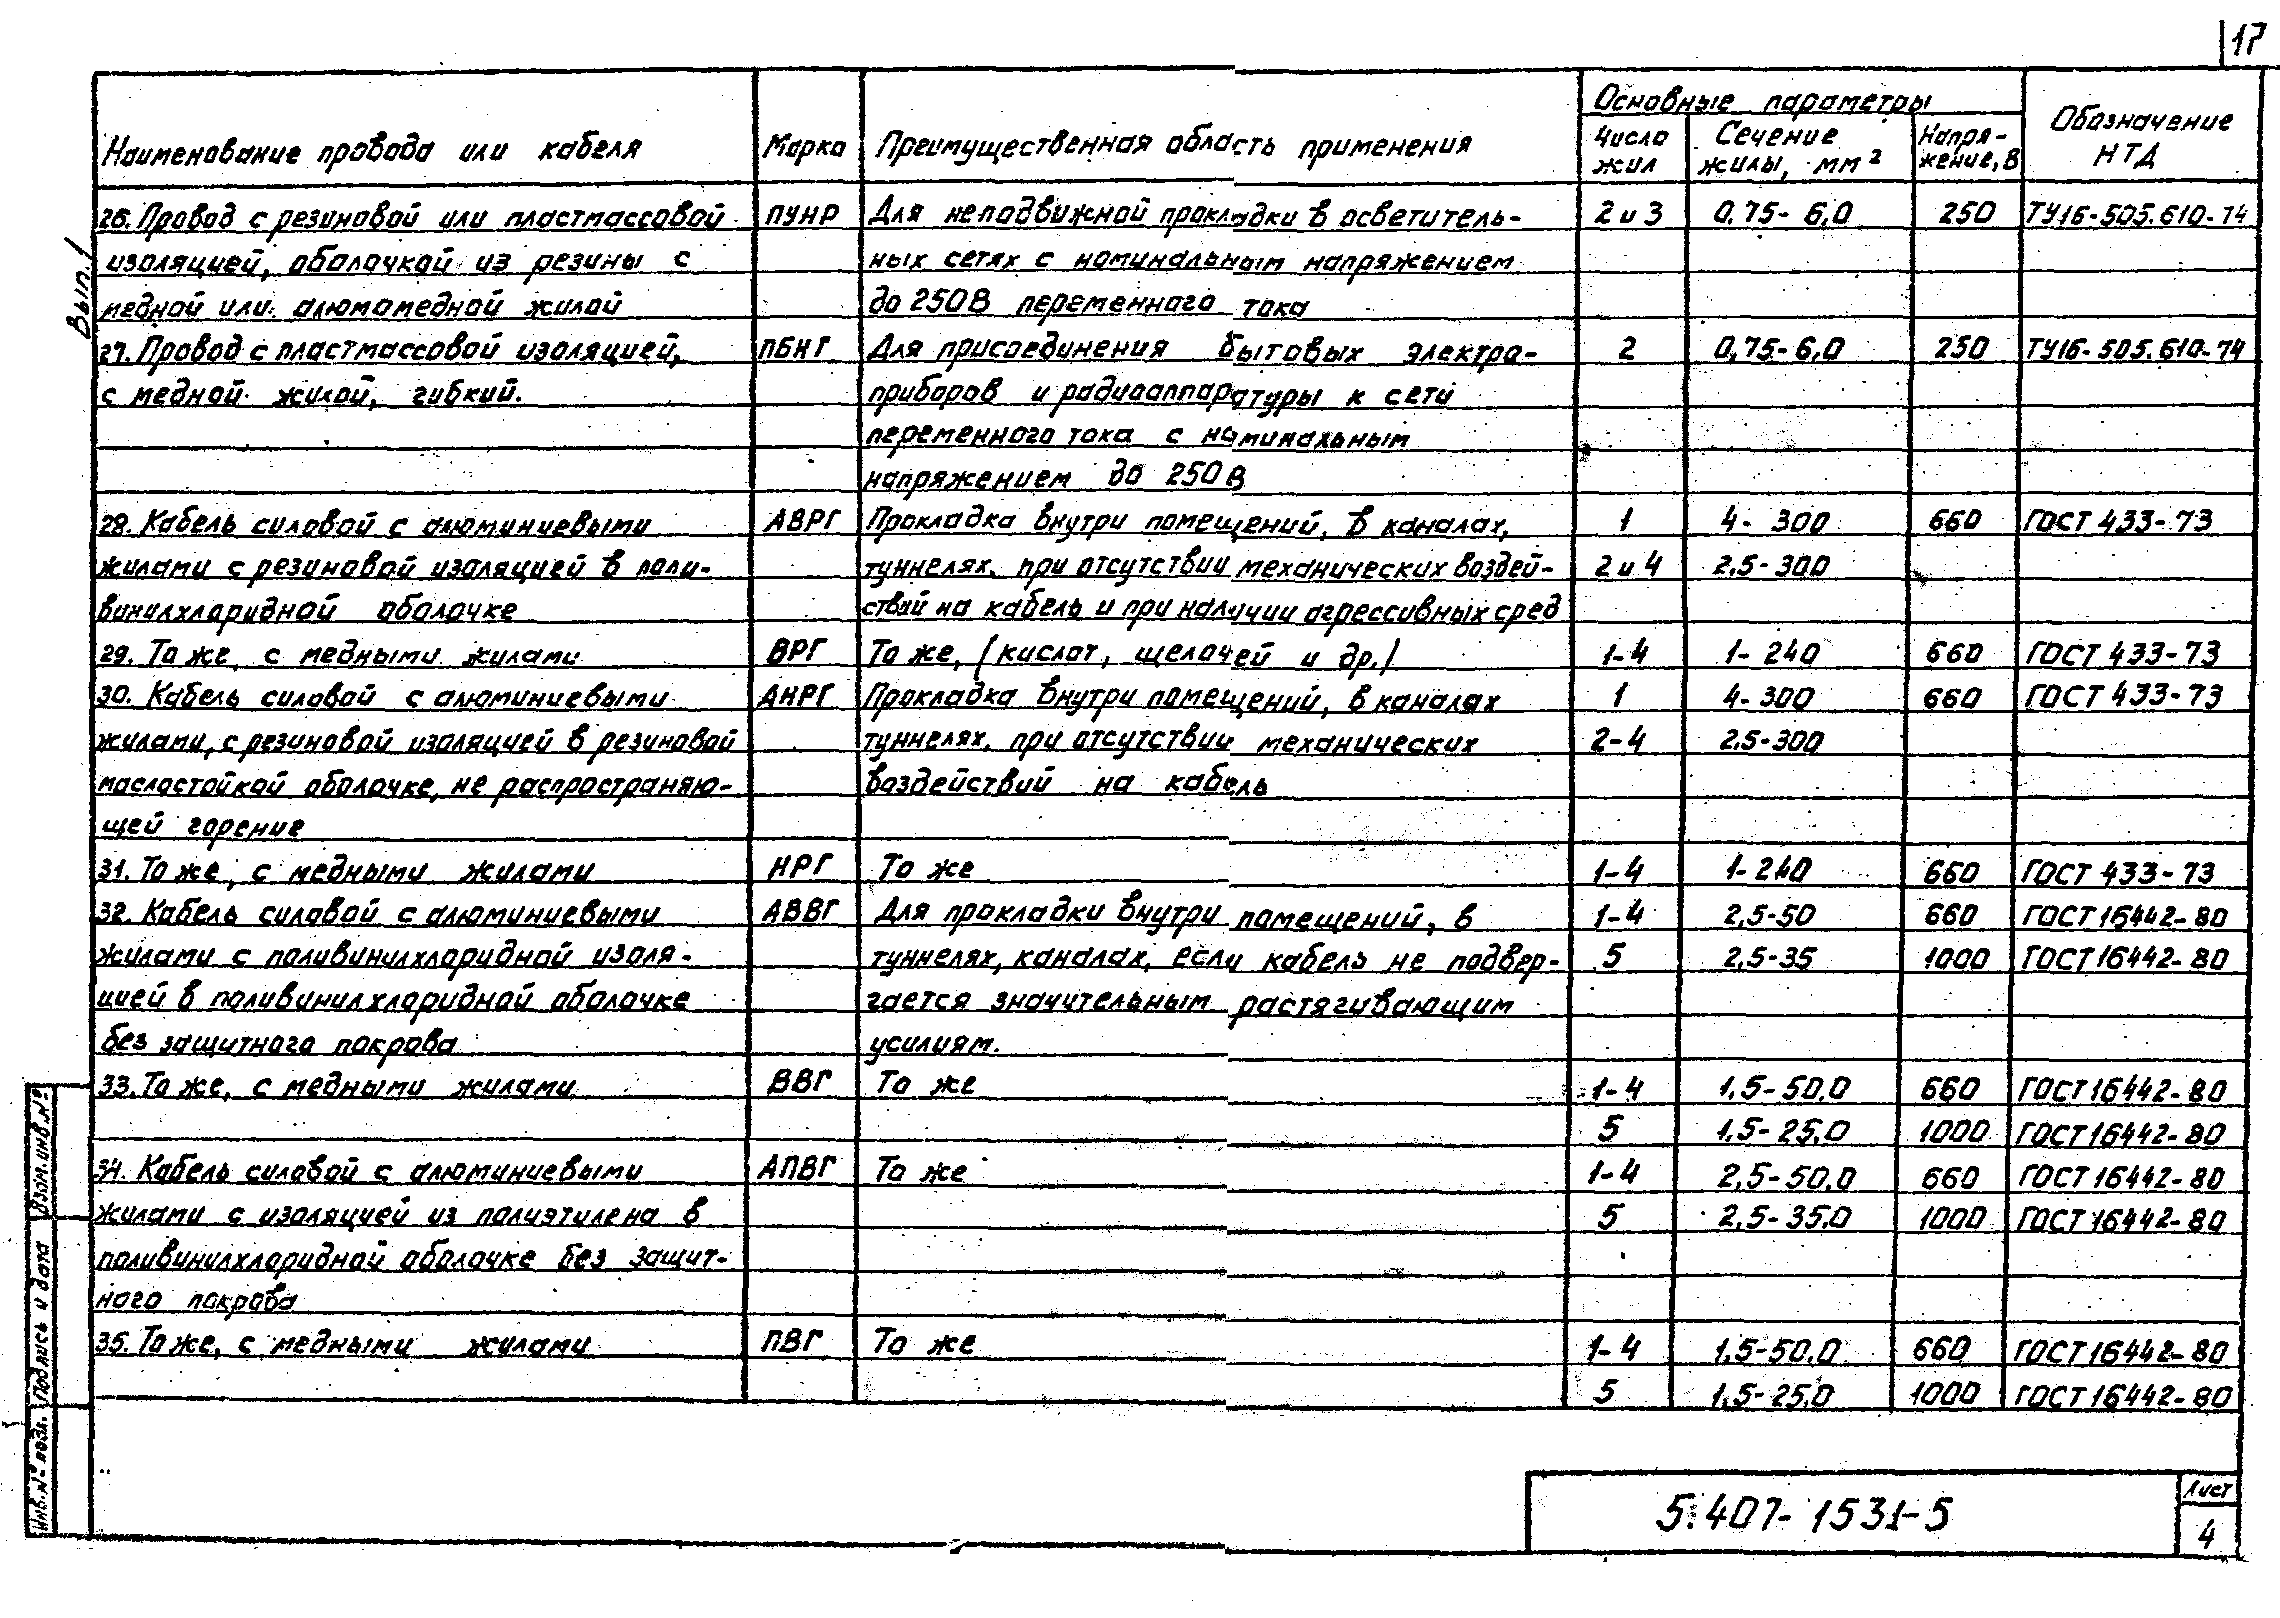 17
Основные параметры
Наименование провода или кабеля | Марка | Преимущественная область применения | Число жил | Сечение жилы, мм² | Напря-жение, В | Обозначение НТД
26. Провод с резиновой или пластмассовой | ПУНР | Для неподвижной прокладки в осветитель- | 2 и 3 | 0.75-6,0 | 250 | ТУ16-505.610-74
изоляцией, оболочкой из резины с | ных сетях с номинальным напряжением
медной или алюмомедной жилой | до 250В переменного тока
27. Провод с пластмассовой изоляцией, | ПБНГ | Для присоединения бытовых электро- | 2 | 0,75-6,0 | 250 | ТУ16-505.610-74
с медной жилой, гибкий. | приборов и радиоаппаратуры к сети
переменного тока с номинальным
напряжением до 250В
28. Кабель силовой с алюминиевыми | АВРГ | Прокладка внутри помещений, в каналах, | 1 | 4-300 | 660 | ГОСТ 433-73
жилами с резиновой изоляцией в поли- | туннелях, при отсутствии механических воздей- | 2 и 4 | 2,5-300
винилхлоридной оболочке | ствий на кабель и при наличии агрессивных сред
29. То же, с медными жилами | ВРГ | То же, (кислот, щелочей и др.) | 1-4 | 1-240 | 660 | ГОСТ 433-73
30. Кабель силовой с алюминиевыми | АНРГ | Прокладка внутри помещений, в каналах | 1 | 4-300 | 660 | ГОСТ 433-73
жилами, с резиновой изоляцией в резиновой | туннелях, при отсутствии механических | 2-4 | 2,5-300
маслостойкой оболочке, не распространяю- | воздействий на кабель
щей горение
31. То же, с медными жилами | НРГ | То же | 1-4 | 1-240 | 660 | ГОСТ 433-73
32. Кабель силовой с алюминиевыми | АВВГ | Для прокладки внутри помещений, в | 1-4 | 2,5-50 | 660 | ГОСТ 16442-80
жилами с поливинилхлоридной изоля- | туннелях, каналах, если кабель не подвер- | 5 | 2,5-35 | 1000 | ГОСТ 16442-80
цией в поливинилхлоридной оболочке | гается значительным растягивающим
без защитного покрова | усилиям.
33. То же, с медными жилами | ВВГ | То же | 1-4 | 1,5-50,0 | 660 | ГОСТ 16442-80
5 | 1,5-25,0 | 1000 | ГОСТ 16442-80
34. Кабель силовой с алюминиевыми | АПВГ | То же | 1-4 | 2,5-50,0 | 660 | ГОСТ 16442-80
жилами с изоляцией из полиэтилена в | 5 | 2,5-35,0 | 1000 | ГОСТ 16442-80
поливинилхлоридной оболочке без защит-
ного покрова
35. То же, с медными жилами | ПВГ | То же | 1-4 | 1,5-50,0 | 660 | ГОСТ 16442-80
5 | 1,5-25,0 | 1000 | ГОСТ 16442-80
Вып. 1
Взам. инв. №
Подпись и дата
Инв. № подл.
5.407-1531-5
Лист
4